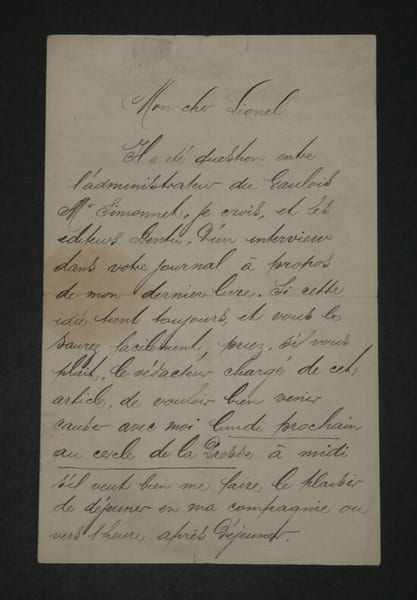 Mon cher Lionel
Il a été question entre
l'administrateur du Gaulois
Mr Simonnet, je crois, et les
éditeurs Dentu, d'un interview
dans votre journal à propos
de mon dernier livre. Si cette
idée tient toujours, et vous le
saurez facilement, priez, s'il vous
plait, le rédacteur chargé de cet
article, de vouloir bien venir
causer avec moi lundi prochain
au cercle de la Presse à midi
s'il veut bien me faire le plaisir
de déjeuner en ma compagnie ou
vers 1 heure après déjeuner.